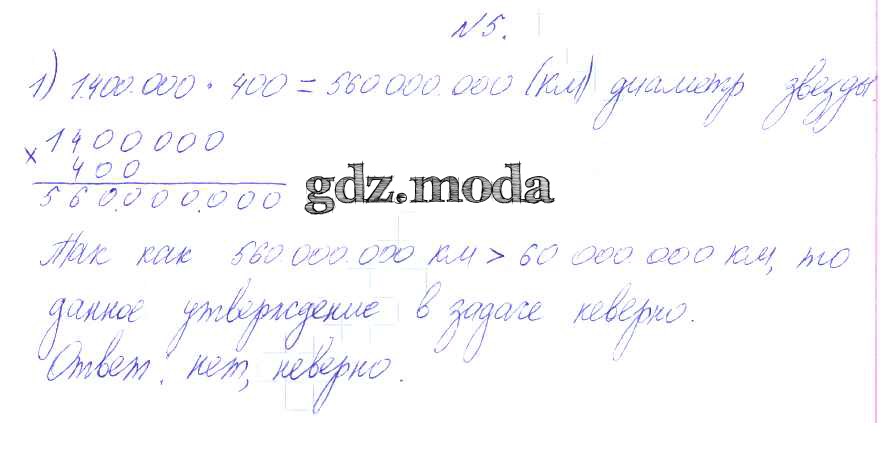 №5.
1) 1.400.000 · 400 = 560 000.000 (км) диаметр звезды.
× 1400000
400
560.000.000
gdz.moda
Так как 560 000.000 км > 60 000 000 км, то
данное утверждение в задаче неверно.
Ответ: нет, неверно.